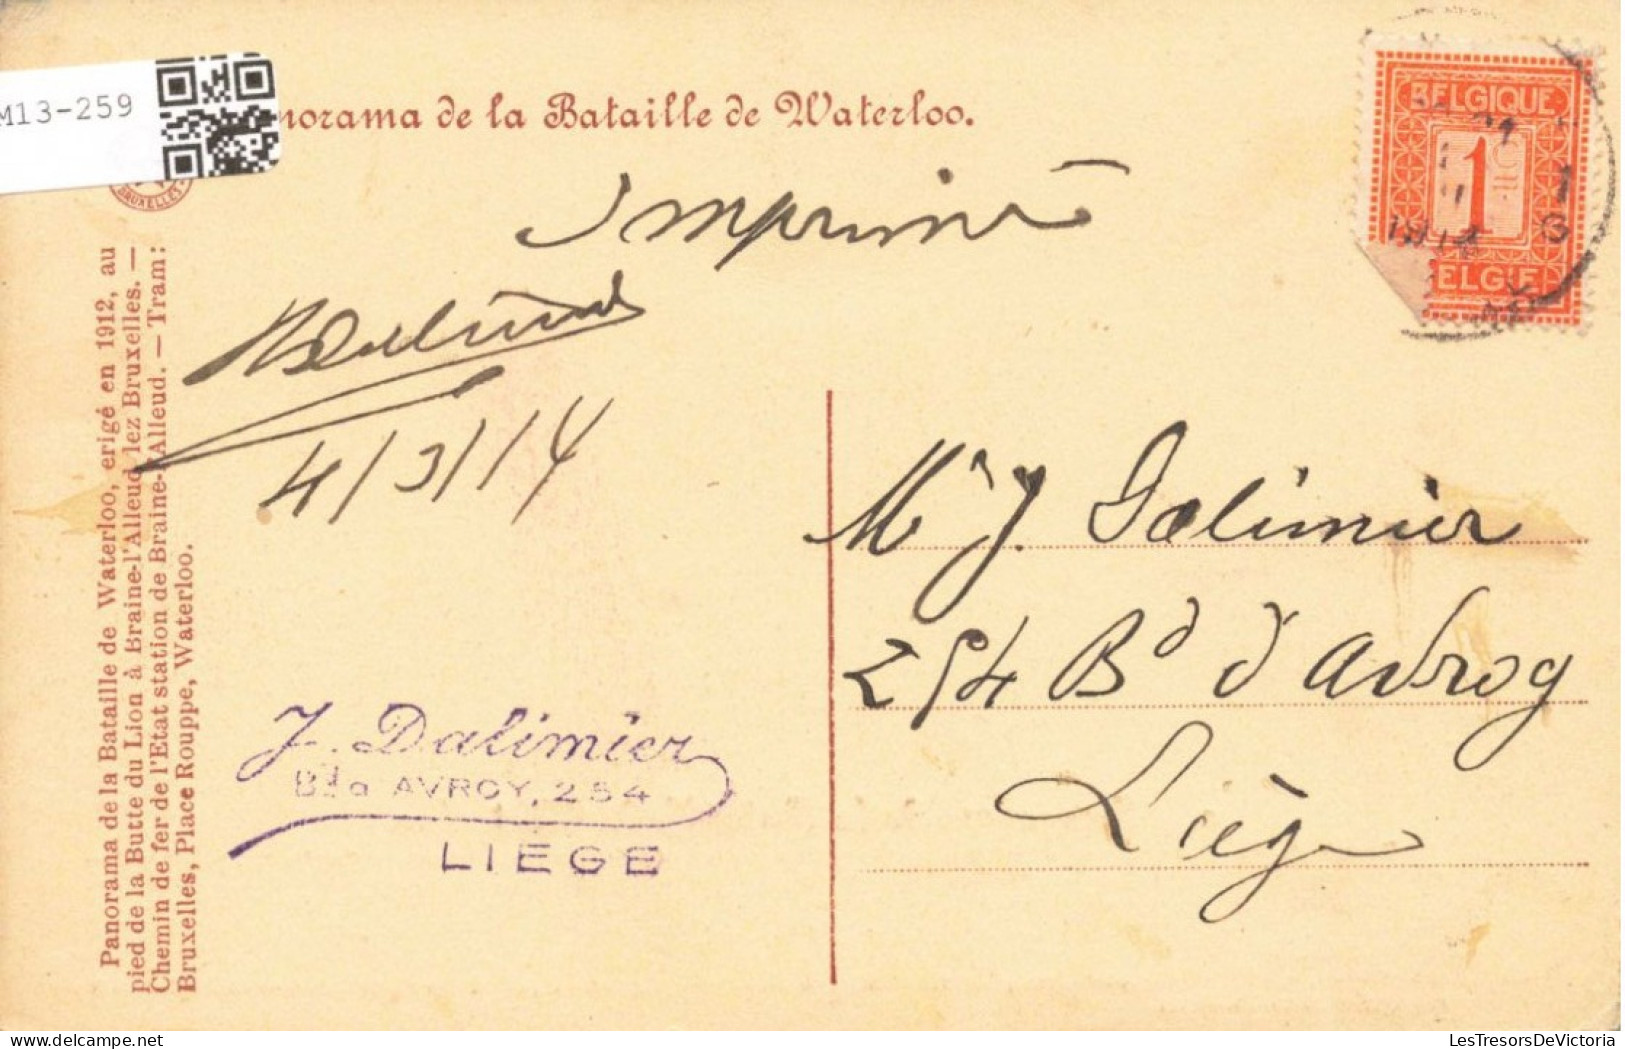 M13-259
norama de la Bataille de Waterloo.
BRUXELLES
BELGIQUE
1
ELGIË
Imprimé
4/3/14
Panorama de la Bataille de Waterloo, erigé en 1912, au
pied de la Butte du Lion à Braine-l'Alleud lez Bruxelles. —
Chemin de fer de l'Etat station de Braine-l'Alleud. — Tram:
Bruxelles, Place Rouppe, Waterloo.
Mr J. Dalimier
254 Bd d'Avroy
Liège
J. Dalimier
Bd d'AVROY, 254
LIEGE
LesTresorsDeVictoria